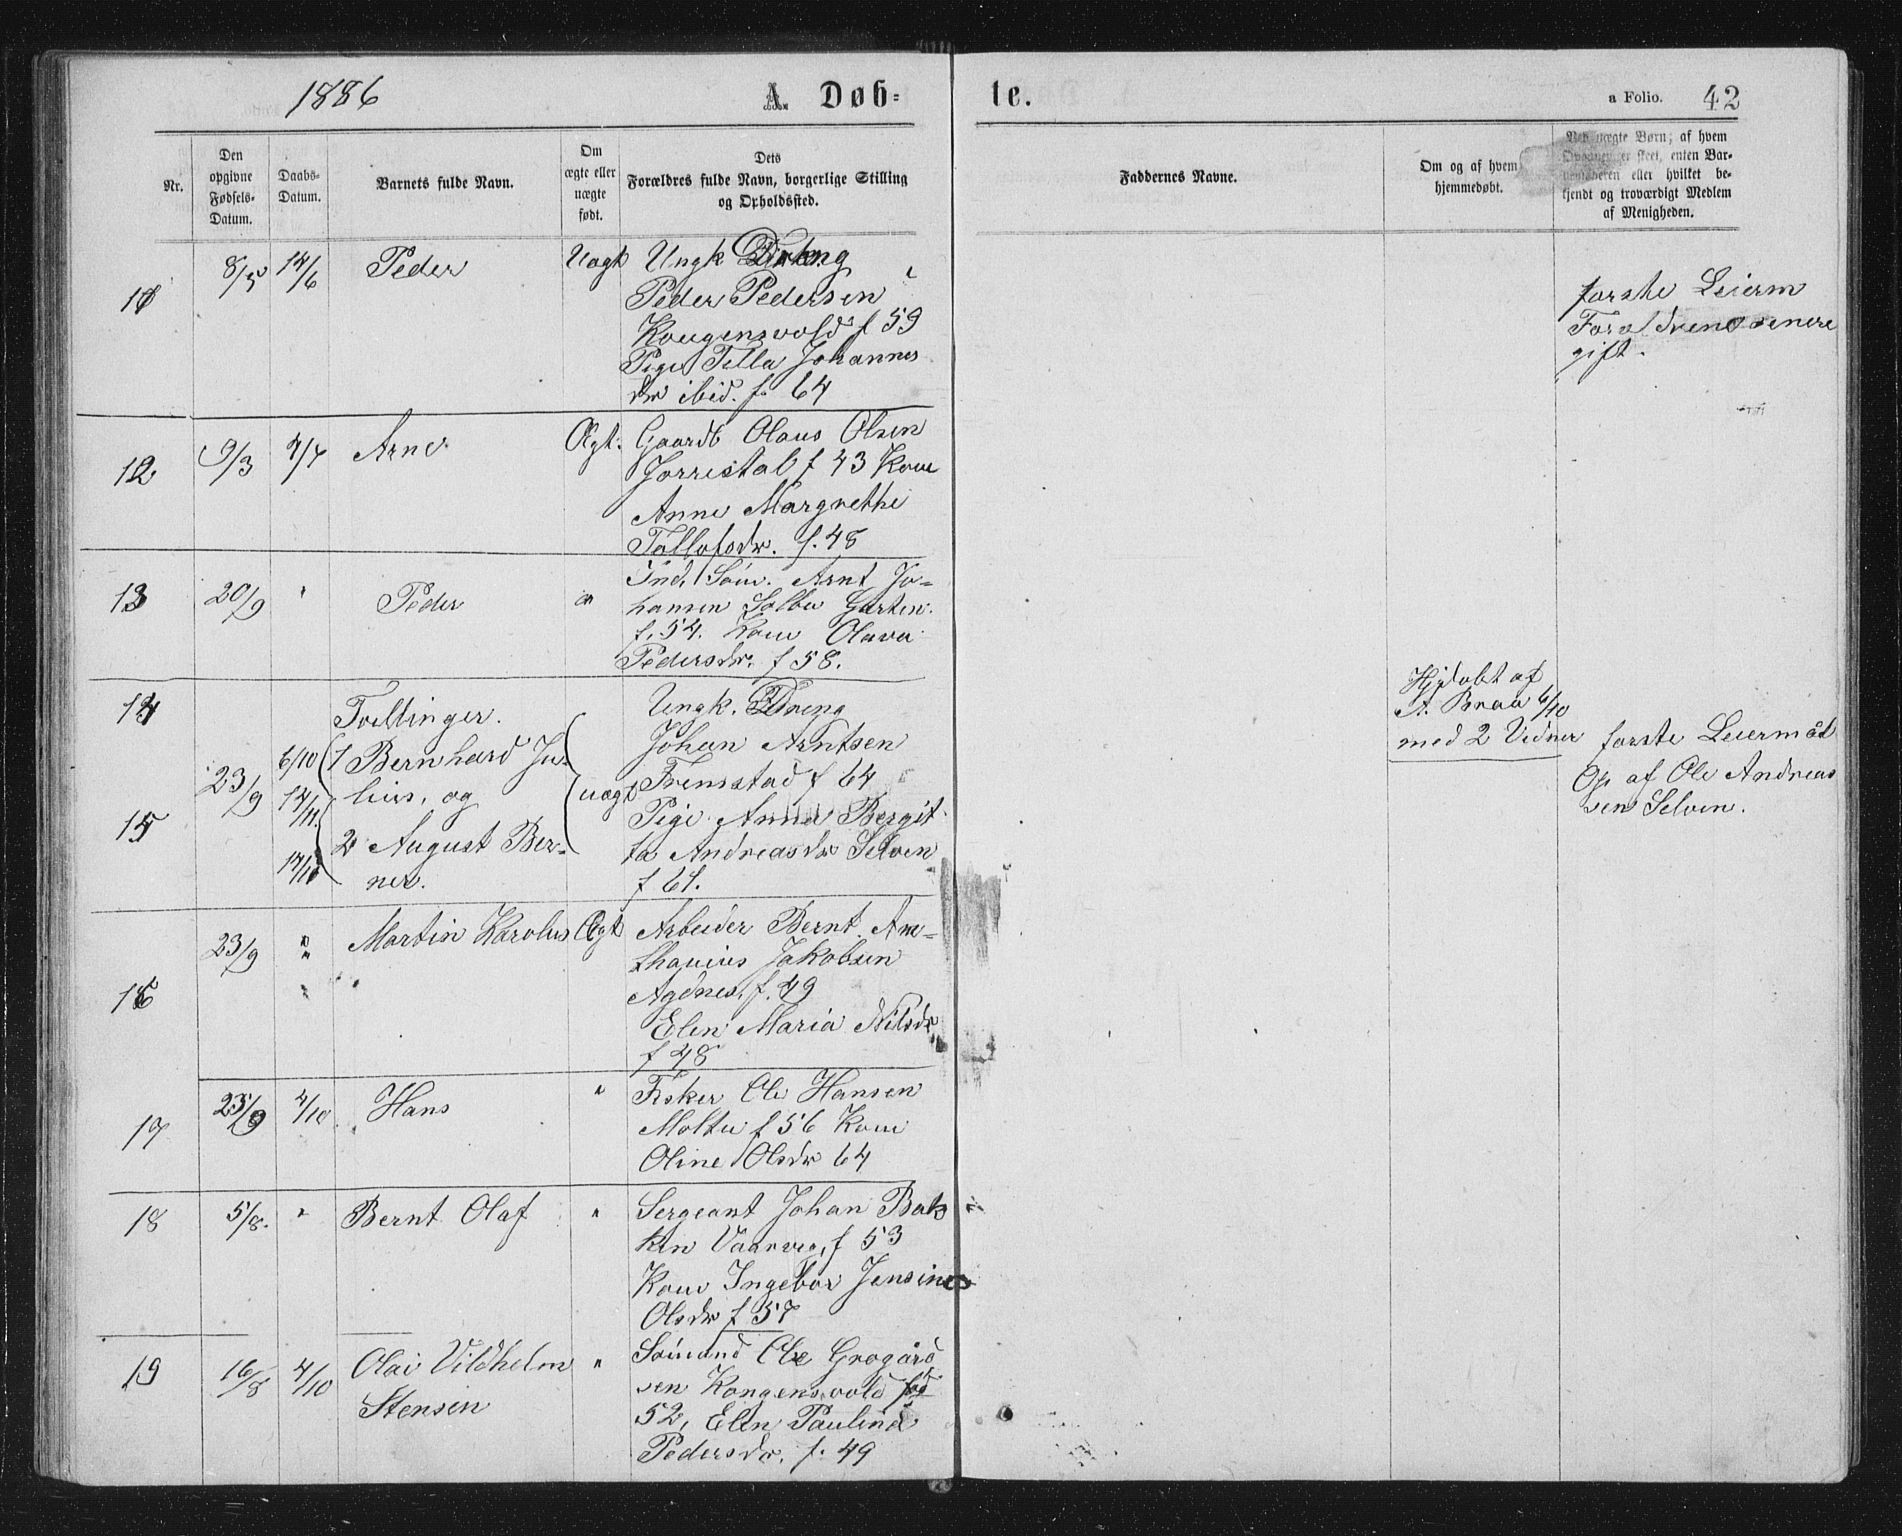 1886 A. Døb- te. a Folio. 42
Nr.
Den opgivne Fødsels-Datum.
Daabs-Datum.
Barnets fulde Navn.
Om ægte eller uægte født.
Dets
Forældres fulde Navn, borgerlige Stilling
og Opholdssted.
Faddernes Navne.
Om og af hvem
hjemmedøbt.
Ved uægte Børn; af hvem
Opgaven er skeet, enten Bar-
nemoderen eller hvilket be-
kjendt og troværdigt Medlem
af Menigheden.
11 8/5 14/6 Peder Uægt Ungk Dreng
Peder Pedersen
Kongensvold f 59
Pige Tella Johannes
dr ibid. f. 64
første Leierm
Forældrene senere
gift.
12 9/3 4/7 Arne Ægt. Gaardb Olaus Olsen
Jorrestal f 43 Kone
Anne Margrethe
Tollofsdr. f. 48
13 20/9 " Peder " Ind. Søm. Arnt Jo-
hansen Solbu Garten.
f. 54. Kone Olava
Pedersdr. f 58.
14 Tvillinger. Ungk. Dreng
23/9 6/10 1 Bernhard Ju-
lius, og
14/11
15 2 August Ber-
ner.
uægt Johan Arntsen
Fremstad f 64
Pige Anna Bergit-
ta Andreasdr Selven
f 61.
Hjdøbt af
A. Braa 6/10
med 2 Vidner
første Leiermål
Og af Ole Andreas
sen Selven.
16 23/9 " Martin Karolus Ægt Arbeider Bernt Am-
thanius Jakobsen
Agdnes, f. 49
Elen Maria Nilsdr
f 48
17 23/9 4/10 Hans " Fisker Ole Hansen
Moltu f 56 Kone
Oline Olsdr 64
18 5/8. " Bernt Olaf " Sergeant Johan Bak
ken Vaarvig, f 53
Kone Ingebor Jensine
Olsdr f 57
19 16/8 4/10 Olai Vildhelm
Stensen
" Sømand Ole Grogård
sen Kongensvold fød
52, Elen Paulina
Pedersdr. f. 49